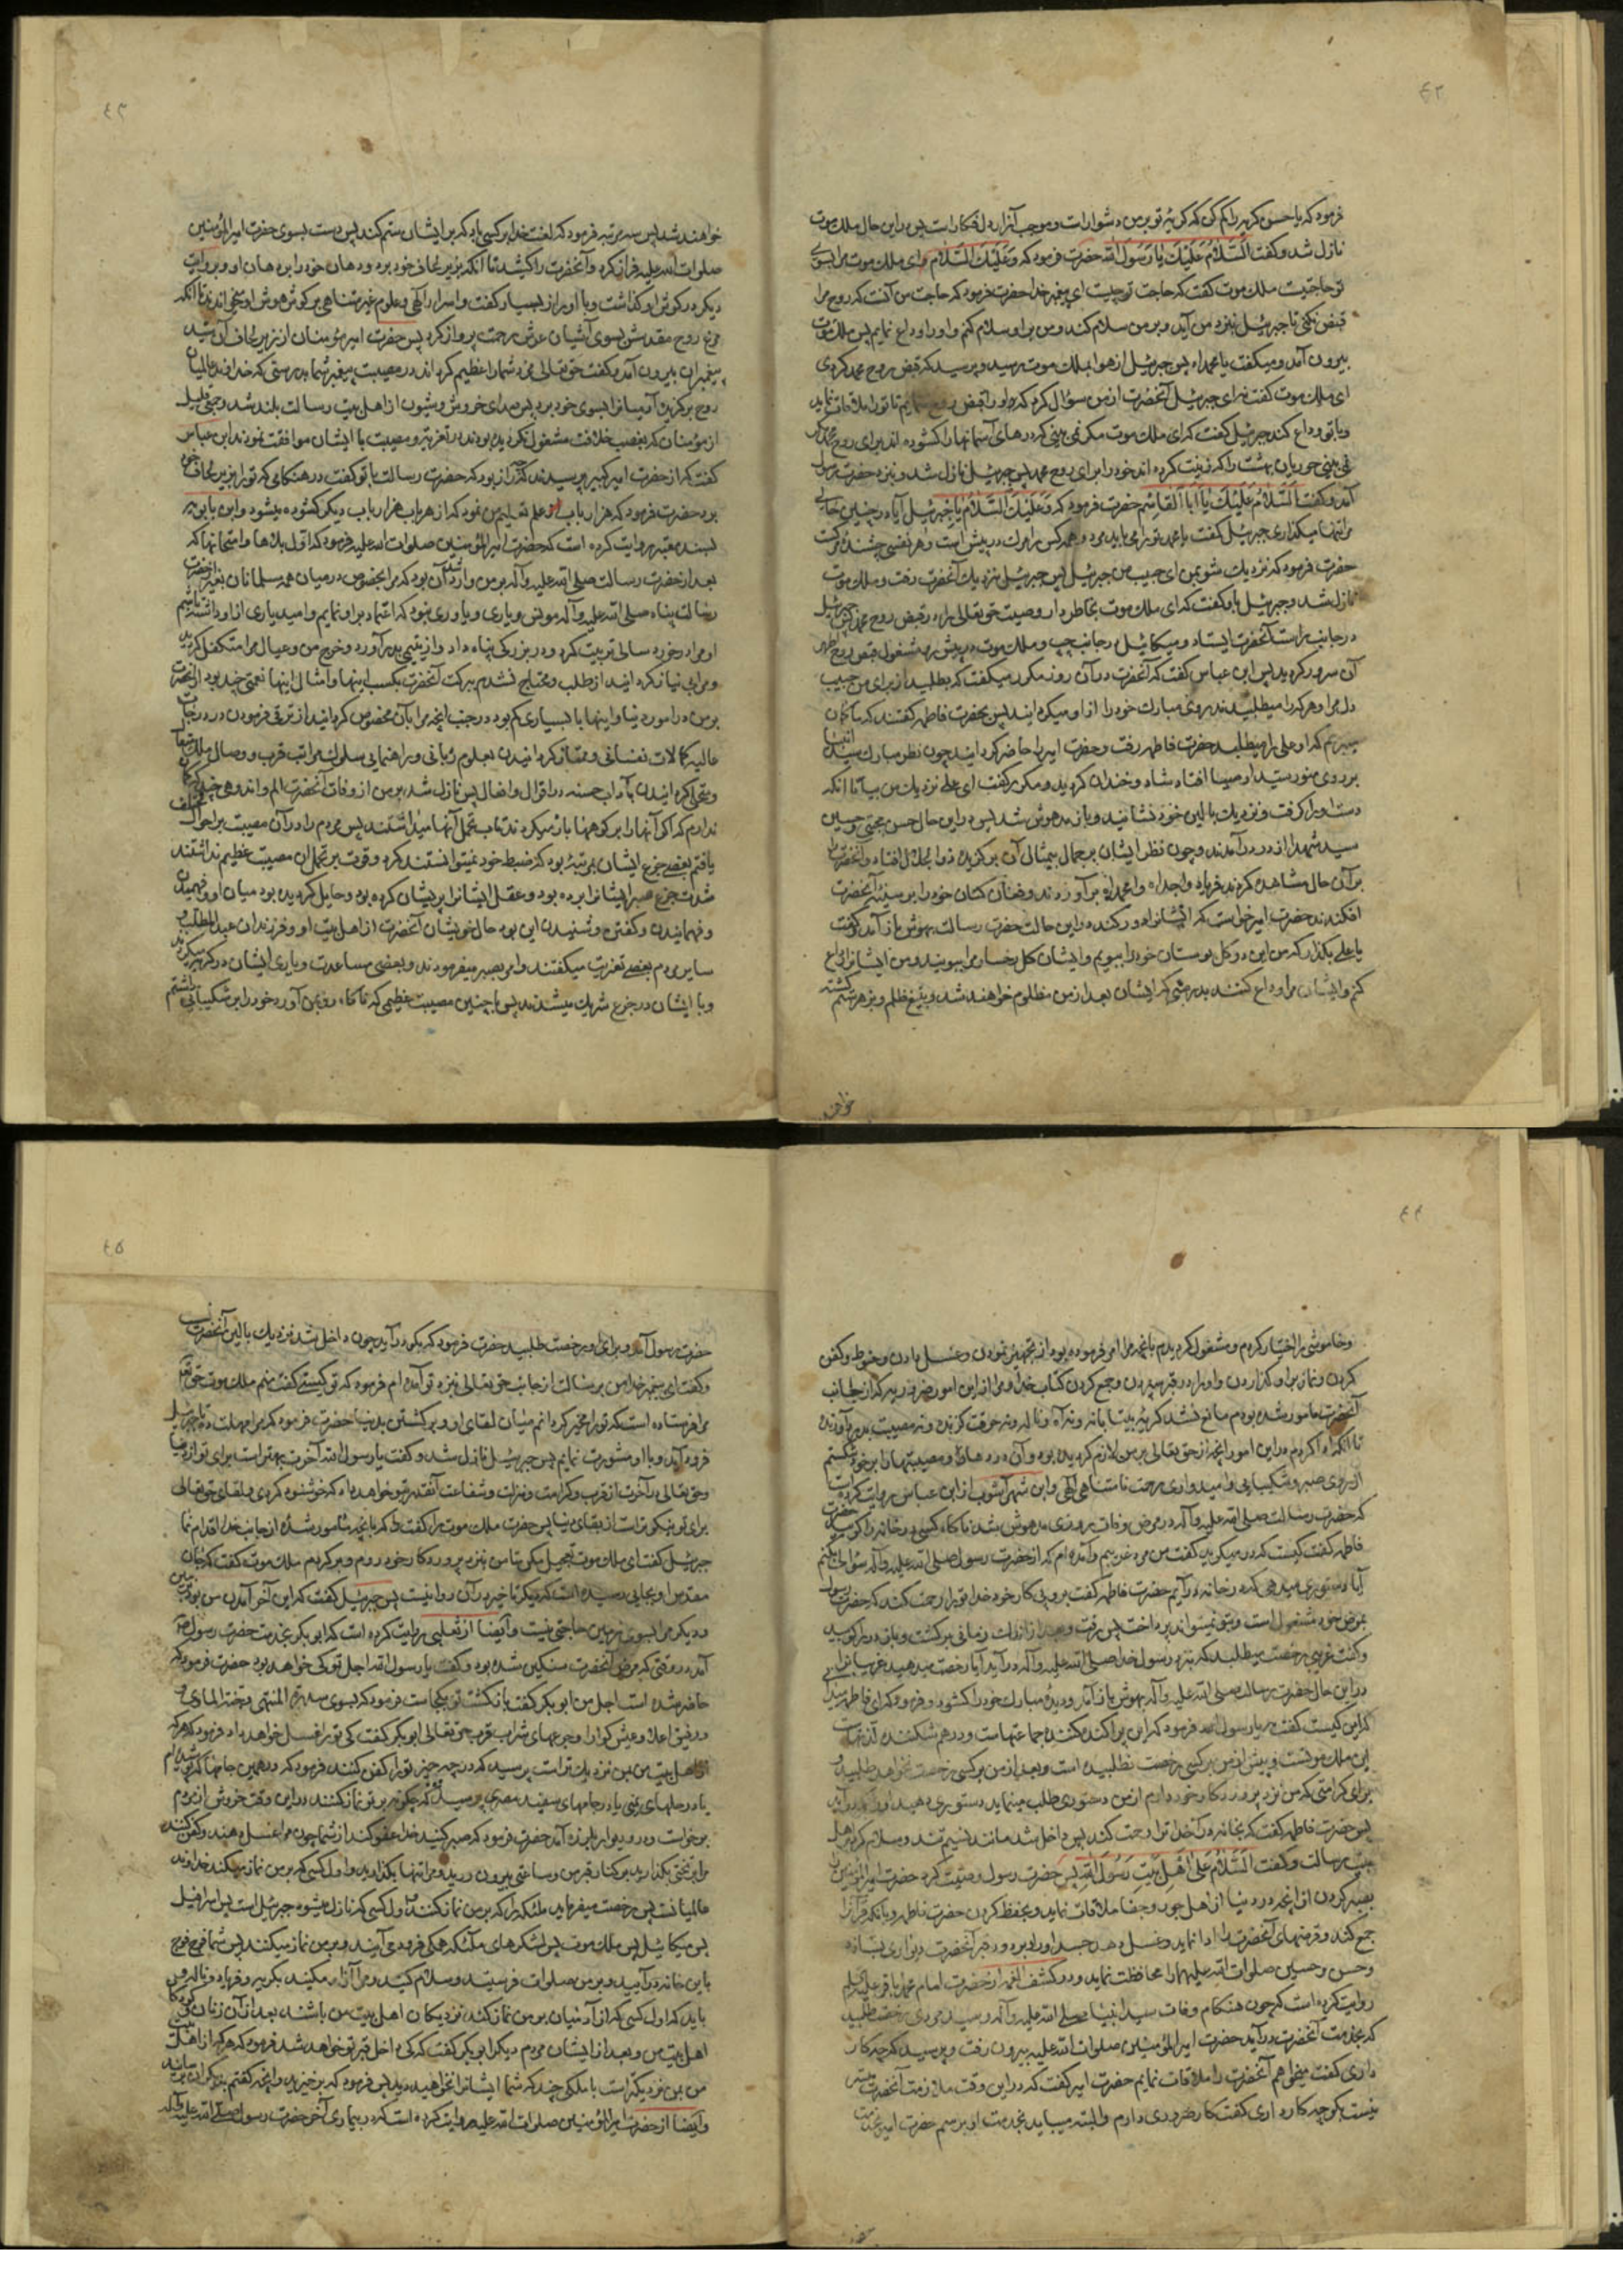 ٤٢
فرمود که یا حسن گریه را کم کن که گریهٔ تو بر من دشوار است و موجب آزار دل افکار است پس در این حال ملک موت
نازل شد و گفت اَلسَّلامُ عَلَیْکَ یا رَسُولَ اللّه حضرت فرمود که وَعَلَیْکَ السَّلام ای ملک موت مرا بسوی
تو حاجتیست ملک موت گفت که حاجت تو چیست ای پیغمبر خدا حضرت فرمود که حاجت من آنست که روح مرا
قبض نکنی تا جبرئیل بنزد من آید و بر من سلام کند و من بر او سلام کنم و او را وداع نمایم پس ملک موت
بیرون آمد و میگفت یا محمداه پس جبرئیل از هوا بملک موت رسید و پرسید که قبض روح محمد کردی
ای ملک موت گفت نه ای جبرئیل آنحضرت از من سؤال کرد که او را قبض روح ننمایم تا تو را ملاقات نماید
و با تو وداع کند جبرئیل گفت که ای ملک موت مگر نمی بینی که درهای آسمانها را گشوده اند برای روح محمد مگر
نمی بینی حوریان بهشت را که زینت کرده اند خود را برای روح محمد پس جبرئیل نازل شد و بنزد حضرت رسول
آمد و گفت اَلسَّلامُ عَلَیْکَ یا اَبَا الْقاسِم حضرت فرمود که وَعَلَیْکَ السَّلامُ یا جبرئیل آیا در چنین حالی
مرا تنها میگذاری جبرئیل گفت یا محمد تو را می باید مرد و همه کس را مرگ در پیش است و هر نفسی چشندهٔ مرگست
حضرت فرمود که نزدیک شو بمن ای حبیب من جبرئیل پس جبرئیل نزدیک آنحضرت رفت و ملک موت
نازل شد و جبرئیل باو گفت که ای ملک موت بخاطر دار وصیت حق تعالی را در قبض روح محمد پس جبرئیل
در جانب راست آنحضرت ایستاد و میکائیل در جانب چپ و ملک موت در پیش رو مشغول قبض روح اطهر
آن سرور گردید پس ابن عباس گفت که آنحضرت در آن روز مکرر میگفت که بطلبید از برای من حبیب
دل مرا و هر که را میطلبیدند روی مبارک خود را از او میگردانید پس بحضرت فاطمه گفتند که ما گمان
میبریم که او علی را میطلبد حضرت فاطمه رفت و حضرت امیر را حاضر گردانید چون نظر مبارک سید انبیا
بر روی منور سید اوصیا افتاد شاد و خندان گردید و مکرر گفت ای علی نزدیک من بیا تا آنکه
دست او را گرفت و نزدیک بالین خود نشانید و باز مدهوش شد پس در این حال حسن مجتبی و حسین
سید شهدا از در درآمدند و چون نظر ایشان بر جمال بیمثال آن برگزیدهٔ ذوالجلال افتاد و آنحضرت را
بر آن حال مشاهده کردند فریاد واجداه و امحمداه برآوردند و فغان کنان خود را بر سینهٔ آنحضرت
افکندند حضرت امیر خواست که ایشانرا دور کند در این حالت حضرت رسالت بهوش باز آمد گفت
یا علی بگذار که من این دو گل بوستان خود را ببویم و ایشان گل رخسار مرا ببویند و من ایشانرا وداع
کنم و ایشان مرا وداع کنند بدرستی که ایشان بعد از من مظلوم خواهند شد و بتیغ ظلم و بزهر ستم کشته
خواهند
٤٣
خواهند شد پس سه مرتبه فرمود که لعنت خدا بر کسی باد که بر ایشان ستم کند پس دست بسوی حضرت امیرالمؤمنین
صلوات الله علیه دراز کرد و آنحضرت را کشید تا آنکه بزیر لحاف خود برد و دهان خود را بر دهان او و بروایت
دیگر در گوش او گذاشت و با او راز بسیار گفت و اسرار الهی و علوم غیر متناهی بر گوش هوش او میخواندند تا آنکه
مرغ روح مقدسش بسوی آشیان عرش رحمت پرواز کرد پس حضرت امیر مؤمنان از زیر لحاف آن سید
پیغمبران بیرون آمد و گفت حق تعالی مزد شما را عظیم گرداند در مصیبت پیغمبر شما بدرستی که خداوند عالمیان
روح برگزیدهٔ آدمیانرا بسوی خود برد پس صدای خروش و شیون از اهل بیت رسالت بلند شد و جمعی قلیل
از مؤمنان که بغصب خلافت مشغول نگردیده بودند در تعزیه و مصیبت با ایشان موافقت نمودند ابن عباس
گفت که از حضرت امیر کبیر پرسیدند که چه راز بود که حضرت رسالت با تو گفت در هنگامی که تو را بزیر لحاف خود
برد حضرت فرمود که هزار باب از علم تعلیم من نمود که از هر باب هزار باب دیگر گشوده میشود و ابن بابویه
بسند معتبر روایت کرده است که حضرت امیرالمؤمنین صلوات الله علیه فرمود که اول بلاها و امتحانها که
بعد از حضرت رسالت صلی الله علیه و آله بر من وارد شد آن بود که مرا بخصوص در میان همه مسلمانان بغیر از حضرت
رسالت پناه صلی الله علیه و آله مونس و یاری و یاوری نبود که اعتماد بر او نمایم و امید یاری از او داشته باشم
او مرا در خورد سالی تربیت کرد و در بزرگی پناه داد و از یتیمی بدر آورد و خرج من و عیال مرا متکفل گردید
و مرا بی نیاز گردانید از طلب و محتاج نشدم ببرکت آنحضرت بکسب اینها و امثال اینها نعمتی چند بود از آنحضرت
بر من در امور دنیا و اینها با بسیاری کم بود در جنب آنچه مرا بآن مخصوص گردانید از ترقی فرمودن در درجات
عالیهٔ کمالات نفسانی و ممتاز گردانیدن بعلوم ربانی و راهنمایی سلوک مراتب قرب و وصال ملک متعال
و متحلی گردانیدن بآداب حسنه در اقوال و افعال پس نازل شد بر من از وفات آنحضرت الم و اندوهی چند که گمان
ندارم که اگر آنها را بر کوهها بار میکردند تاب تحمل آنها میداشتند پس مردم را در آن مصیبت بر احوال مختلف
یافتم بعضی جزع ایشان بمرتبهٔ بود که ضبط خود نمیتوانستند کرد و قوت بر تحمل آن مصیبت عظیم نداشتند
شدت جزع صبر ایشانرا برده بود و عقل ایشانرا پریشان کرده بود و حایل گردیده بود میان او و فهمیدن
و فهمانیدن و گفتن و شنیدن این بود حال خویشان آنحضرت از اهل بیت او و فرزندان عبدالمطلب و
سایر مردم بعضی تعزیت میگفتند و امر بصبر میفرمودند و بعضی مساعدت و یاری ایشان در گریه میکردند
و با ایشان در جزع شریک میشدند پس با چنین مصیبت عظیمی که ناگاه رو بمن آورد خود را بر شکیبایی داشتم
٤٤
و خاموشی را اختیار کردم و مشغول گردیدم بآنچه مرا امر فرموده بود از تجهیز نمودن و غسل دادن و حنوط و کفن
کردن و نماز بر او گذاردن و او را در قبر سپردن و جمع کردن کتاب خدا و مرا از این امور ضروریه که از جانب
آنحضرت مأمور شده بودم مانع نشد گریهٔ بیتابانه و نه آه و ناله و نه حرقت گزنده و نه مصیبت بدرد آورنده
تا آنکه ادا کردم در این امور آنچه از حق تعالی بر من لازم گردیده بود و آن دردها و مصیبتها را بر خود شکستم
از روی صبر و شکیبایی و امیدواری رحمت نامتناهی الهی و ابن شهرآشوب از ابن عباس روایت کرده است
که حضرت رسالت صلی الله علیه و آله در مرض وفات روزی مدهوش شد ناگاه کسی در خانه را کوبید حضرت
فاطمه گفت کیست که در میکوبد گفت من مرد غریبم و آمده ام که از حضرت رسول صلی الله علیه و آله سؤالی بکنم
آیا دستوری میدهی که در خانه درآیم حضرت فاطمه گفت برو پی کار خود خدا تو را رحمت کند که حضرت رسول
بمرض خود مشغول است و بتو نمیتواند پرداخت پس رفت و بعد از اندک زمانی برگشت و باز در را کوبید
و گفت غریبی رخصت میطلبد که بنزد رسول خدا صلی الله علیه و آله درآید آیا رخصت میدهید غریبانرا
در این حال حضرت رسالت صلی الله علیه و آله بهوش باز آمد و دیدهٔ مبارک خود را گشود و فرمود که ای فاطمه میدانی
که این کیست گفت نه یا رسول الله فرمود که این پراکنده کنندهٔ جماعتهاست و درهم شکنندهٔ لذتهاست
این ملک موتست و پیش از من بر کسی رخصت نطلبیده است و بعد از من بر کسی رخصت نخواهد طلبید و
برای کرامتی که من نزد پروردگار خود دارم از من دستوری طلب مینماید دستوری دهید او را که درآید
پس حضرت فاطمه گفت که بخانه درآ خدا ترا رحمت کند پس داخل شد مانند نسیم تند و سلام کرد بر اهل
بیت رسالت و گفت اَلسَّلامُ عَلی اَهْلِ بَیْتِ رَسُولِ اللّهِ پس حضرت رسول وصیت کرد حضرت امیرالمؤمنین را
بصبر کردن از آنچه در دنیا از اهل جور و جفا ملاقات نماید و بحفظ کردن حضرت فاطمه و بآنکه قرآنرا
جمع کند و قرضهای آنحضرت را ادا نماید و غسل دهد جسد او را و بر دور قبر آنحضرت دیواری بسازد
و حسن و حسین صلوات الله علیهما را محافظت نماید و در کشف الغمه از حضرت امام محمد باقر علیه السلام
روایت کرده است که چون هنگام وفات سید انبیا صلی الله علیه و آله رسید مردی رخصت طلبید
که بخدمت آنحضرت درآید حضرت امیرالمؤمنین صلوات الله علیه بیرون رفت و پرسید که چه کار
داری گفت میخواهم آنحضرت را ملاقات نمایم حضرت امیر گفت که در این وقت ملازمت آنحضرت میسر
نیست بگو چه کار داری گفت کار ضروری دارم و البته میباید بخدمت او برسم حضرت امیر بخدمت
حضرت
٤٥
حضرت رسول آمد و برای او رخصت طلبید حضرت فرمود که بگو درآید چون داخل شد نزدیک بالین آنحضرت نشست
و گفت ای پیغمبر خدا من برسالت از جانب حق تعالی نزد تو آمده ام فرمود که تو کیستی گفت منم ملک موت حق تعالی
مرا فرستاده است که تو را مخیر گردانم میان لقای او و برگشتن بدنیا حضرت فرمود که مرا مهلت ده تا جبرئیل
فرود آید و با او مشورت نمایم پس جبرئیل نازل شد و گفت یا رسول الله آخرت بهتر است برای تو از دنیا
و حق تعالی در آخرت از قرب و کرامت و منزلت و شفاعت آنقدر بتو خواهد داد که خوشنود گردی و لقای حق تعالی
برای تو نیکوتر است از بقای دنیا پس حضرت ملک موت را گفت که بآنچه مأمور شدهٔ از جانب خدا اقدام نما
جبرئیل گفت ای ملک موت تعجیل مکن تا من بنزد پروردگار خود روم و برگردم ملک موت گفت که جان
مقدس او بجایی رسیده است که دیگر تأخیر در آن روا نیست پس جبرئیل گفت که این آخر آمدن من بود بزمین
و دیگر مرا بسوی زمین حاجتی نیست و ایضا از ثعلبی روایت کرده است که ابوبکر بخدمت حضرت رسول
آمد در وقتی که مرض آنحضرت سنگین شده بود و گفت یا رسول الله اجل تو کی خواهد بود حضرت فرمود که
حاضر شده است اجل من ابوبکر گفت بازگشت تو بکجاست فرمود که بسوی سدرة المنتهی و جنة المأوی و
و رفیق اعلا و عیش گوارا و جرعهای شراب قرب حق تعالی ابوبکر گفت کی تو را غسل خواهد داد فرمود که هر که
از اهل بیت من بمن نزدیک تر است پرسید که در چه چیز تو را کفن کنند فرمود که در همین جامها که پوشیده ام
یا در حلهای یمنی یا در جامهای سفید مصری پرسید که چگونه بر تو نماز کنند در این وقت خروش از مردم
برخواست و در و دیوار بلرزه آمد حضرت فرمود که صبر کنید خدا عفو کند از شما چون مرا غسل دهند و کفن کنند
مرا بر تختی بگذارید بر کنار قبر من و ساعتی بیرون روید و مرا تنها بگذارید و اول کسی که بر من نماز میکند خداوند
عالمیانست پس رخصت میفرماید ملائکه را که بر من نماز کنند و اول کسی که نازل میشود جبرئیل است پس اسرافیل
پس میکائیل پس ملک موت پس لشکرهای ملائکه همگی فرود می آیند و بر من نماز میکنند پس شما فوج فوج
باین خانه درآیید و بر من صلوات فرستید و سلام کنید و مرا آزار مکنید بگریه و فریاد و ناله و
باید که اول کسی که از آدمیان بر من نماز کند نزدیکان اهل بیت من باشند بعد از آن زنان و کودکان
اهل بیت من و بعد از ایشان مردم دیگر ابوبکر گفت که کی داخل قبر تو خواهد شد فرمود که هر که از اهل بیت
من بمن نزدیکتر است با ملکی چند که شما ایشانرا نخواهید دید پس فرمود که برخیزید و آنچه گفتم بدیگران برسانید
و ایضا از حضرت امیرالمؤمنین صلوات الله علیه روایت کرده است که در بیماری آخر حضرت رسول صلی الله علیه و آله